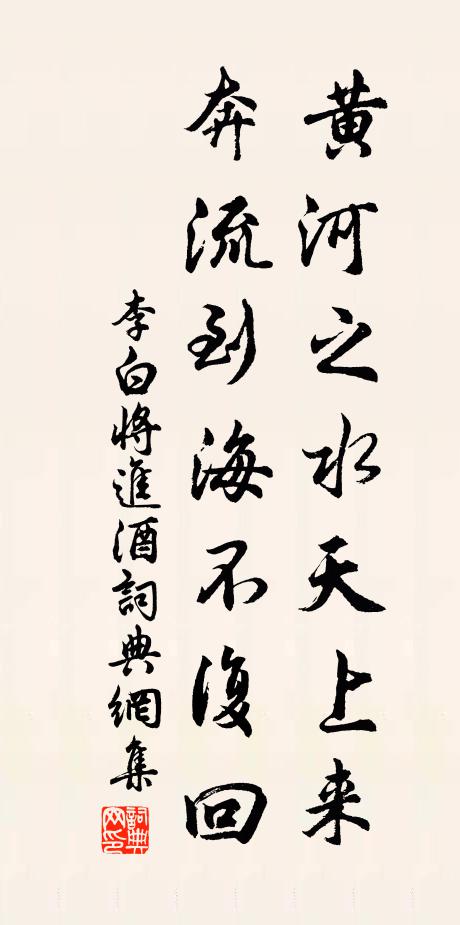 黄河之水天上来
奔流到海不復回
李白將進酒詞典網集
詞典網印